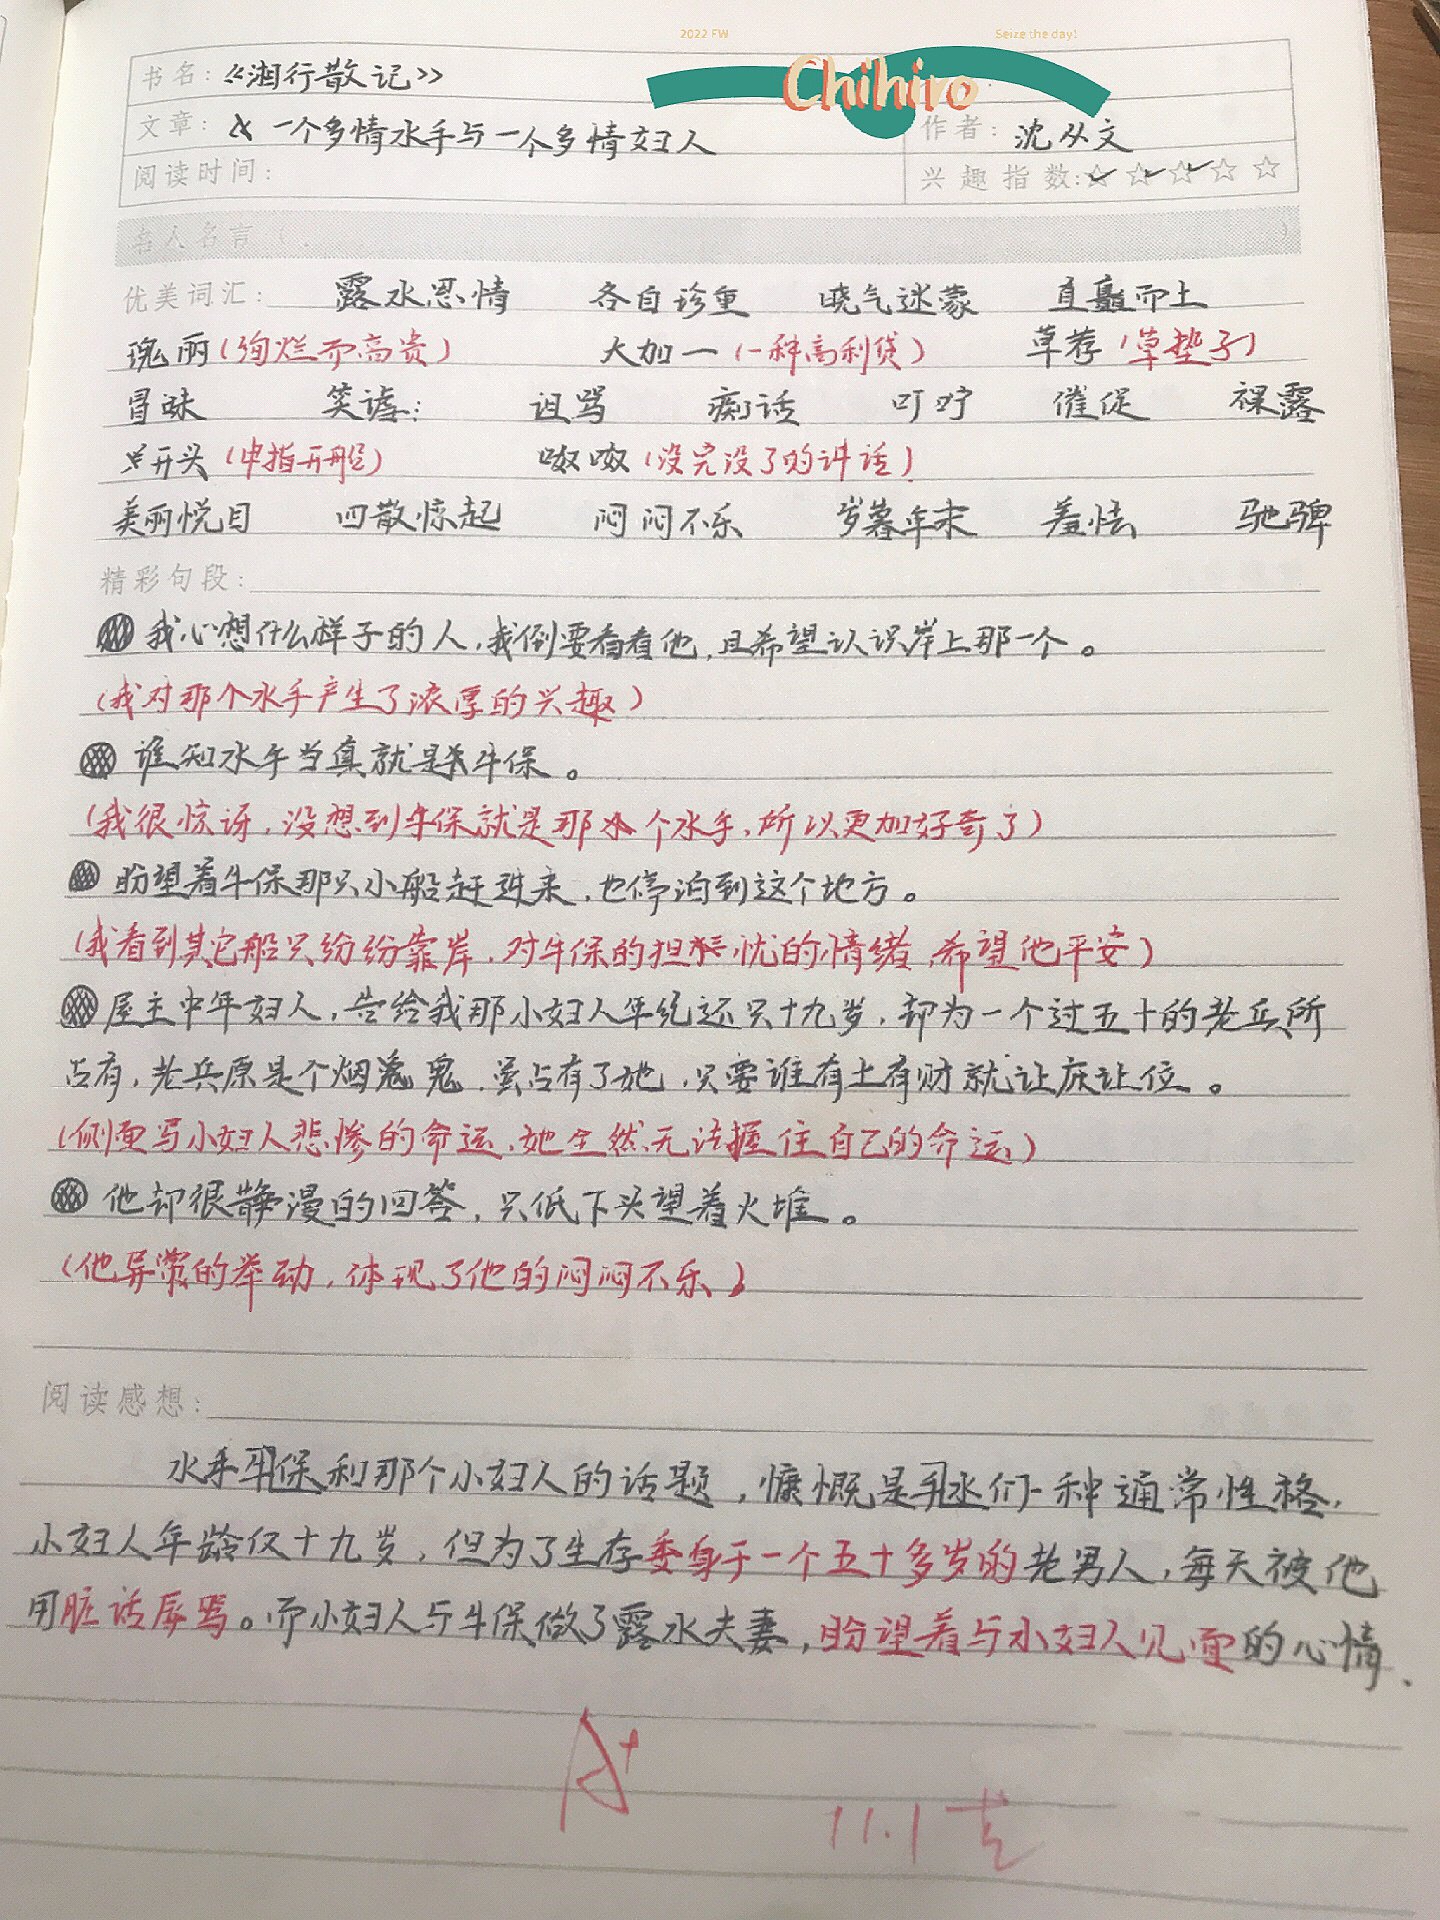 2022 FW
Seize the day!
Chihiro
书名：《湘行散记》
文章： 一个多情水手与一个多情妇人 作者：沈从文
阅读时间： 兴趣指数：☆☆☆☆☆
名人名言
优美词汇： 露水恩情 各自珍重 晓气迷蒙 直矗而上
瑰丽（绚烂而高贵） 大加一（一种高利贷） 草荐（草垫子）
冒昧 笑谑： 诅骂 痴话 叮咛 催促 裸露
开头（中指开船） 呶呶（没完没了的讲话）
美丽悦目 四散惊起 闷闷不乐 岁暮年末 羞怯 驰骋
精彩句段：
我心想什么样子的人，我倒要看看他，且希望认识岸上那一个。
（我对那个水手产生了浓厚的兴趣）
谁知水手当真就是牛保。
（我很惊讶，没想到牛保就是那个水手，所以更加好奇了）
盼望着牛保那只小船赶进来，也停泊到这个地方。
（我看到其它船只纷纷靠岸，对牛保的担忧的情绪，希望他平安）
屋主中年妇人，告给我那小妇人年纪还只十九岁，却为一个过五十的老兵所
占有，老兵原是个烟鬼，虽占有了她，只要谁有土有财就让床让位。
（侧面写小妇人悲惨的命运，她全然无法握住自己的命运）
他却很静漫的回答，只低下头望着火堆。
（他异常的举动，体现了他的闷闷不乐）
阅读感想：
水手牛保和那个小妇人的话题，慷慨是水们一种通常性格，
小妇人年龄仅十九岁，但为了生存委身于一个五十多岁的老男人，每天被他
用脏话辱骂。而小妇人与牛保做了露水夫妻，盼望着与小妇人见面的心情．
A+
11.1